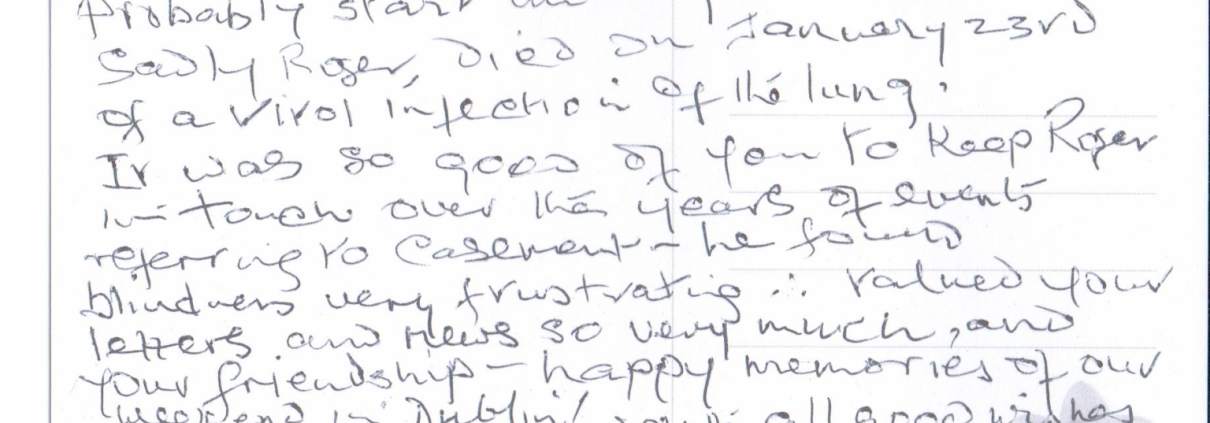 Probably start
January 23rd
Sadly Roger, died on
of a viral infection of the lung.
It was so good of you to keep Roger
in touch over the years of events
referring to Casement - he found
blindness very frustrating ∴ valued your
letters and news so very much, and
your friendship - happy memories of our
weekend in Dublin! all good wishes